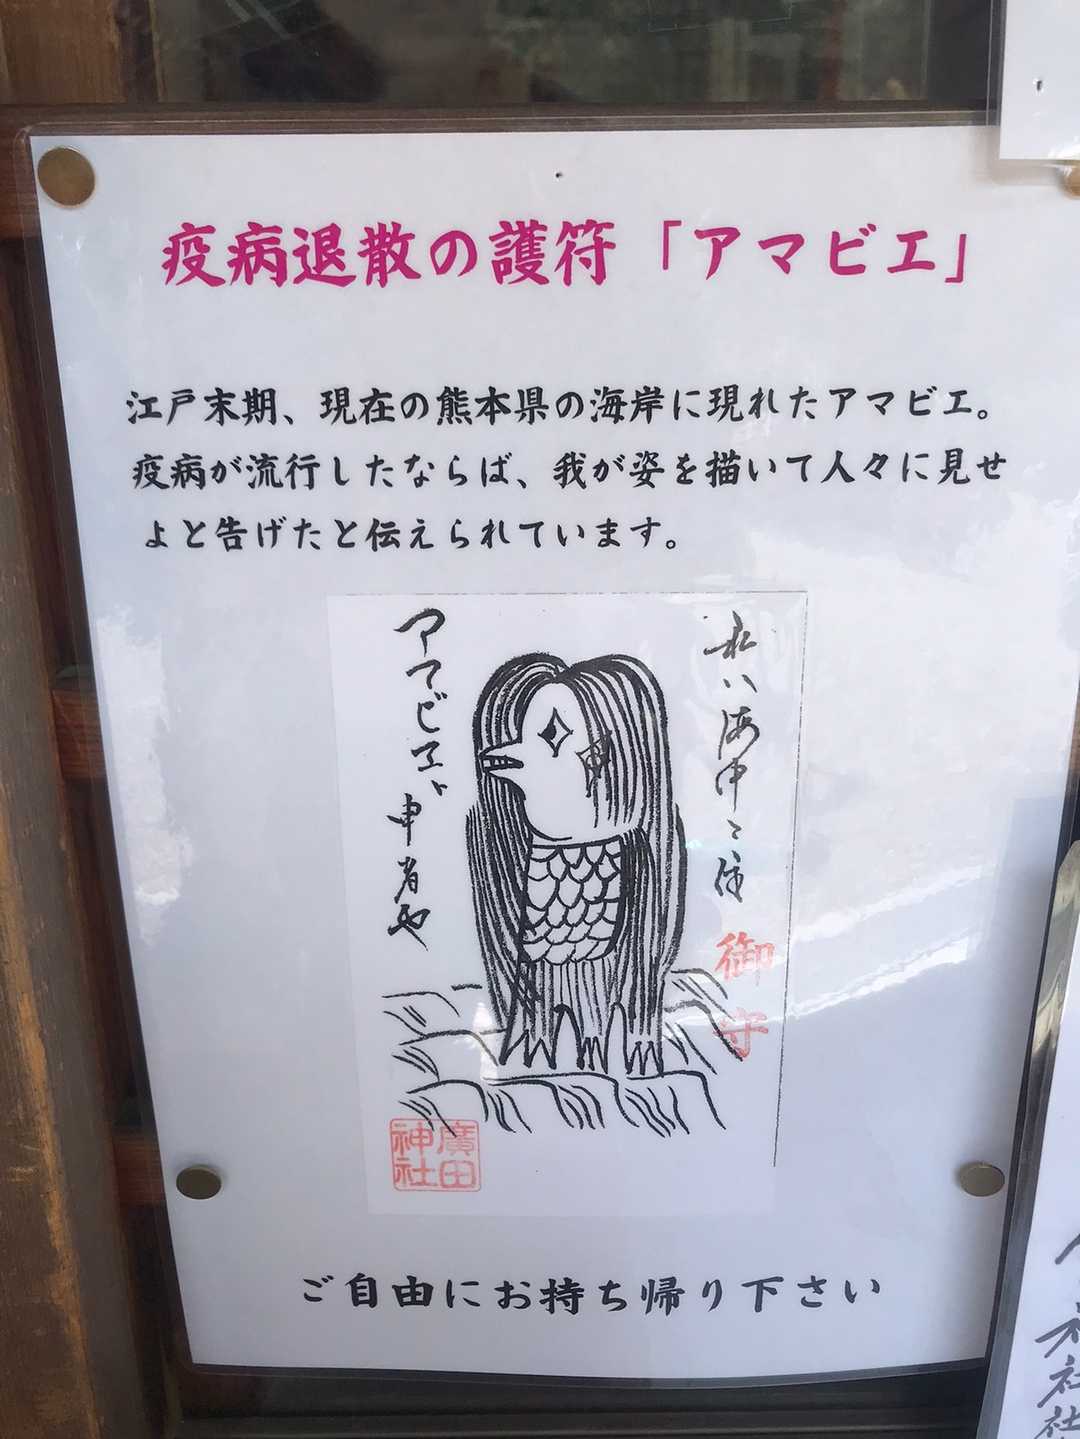 疫病退散の護符「アマビエ」
江戸末期、現在の熊本県の海岸に現れたアマビエ。
疫病が流行したならば、我が姿を描いて人々に見せ
よと告げたと伝えられています。
私ハ海中ニ住
アマビヱト申者也
御守
廣田
神社
ご自由にお持ち帰り下さい